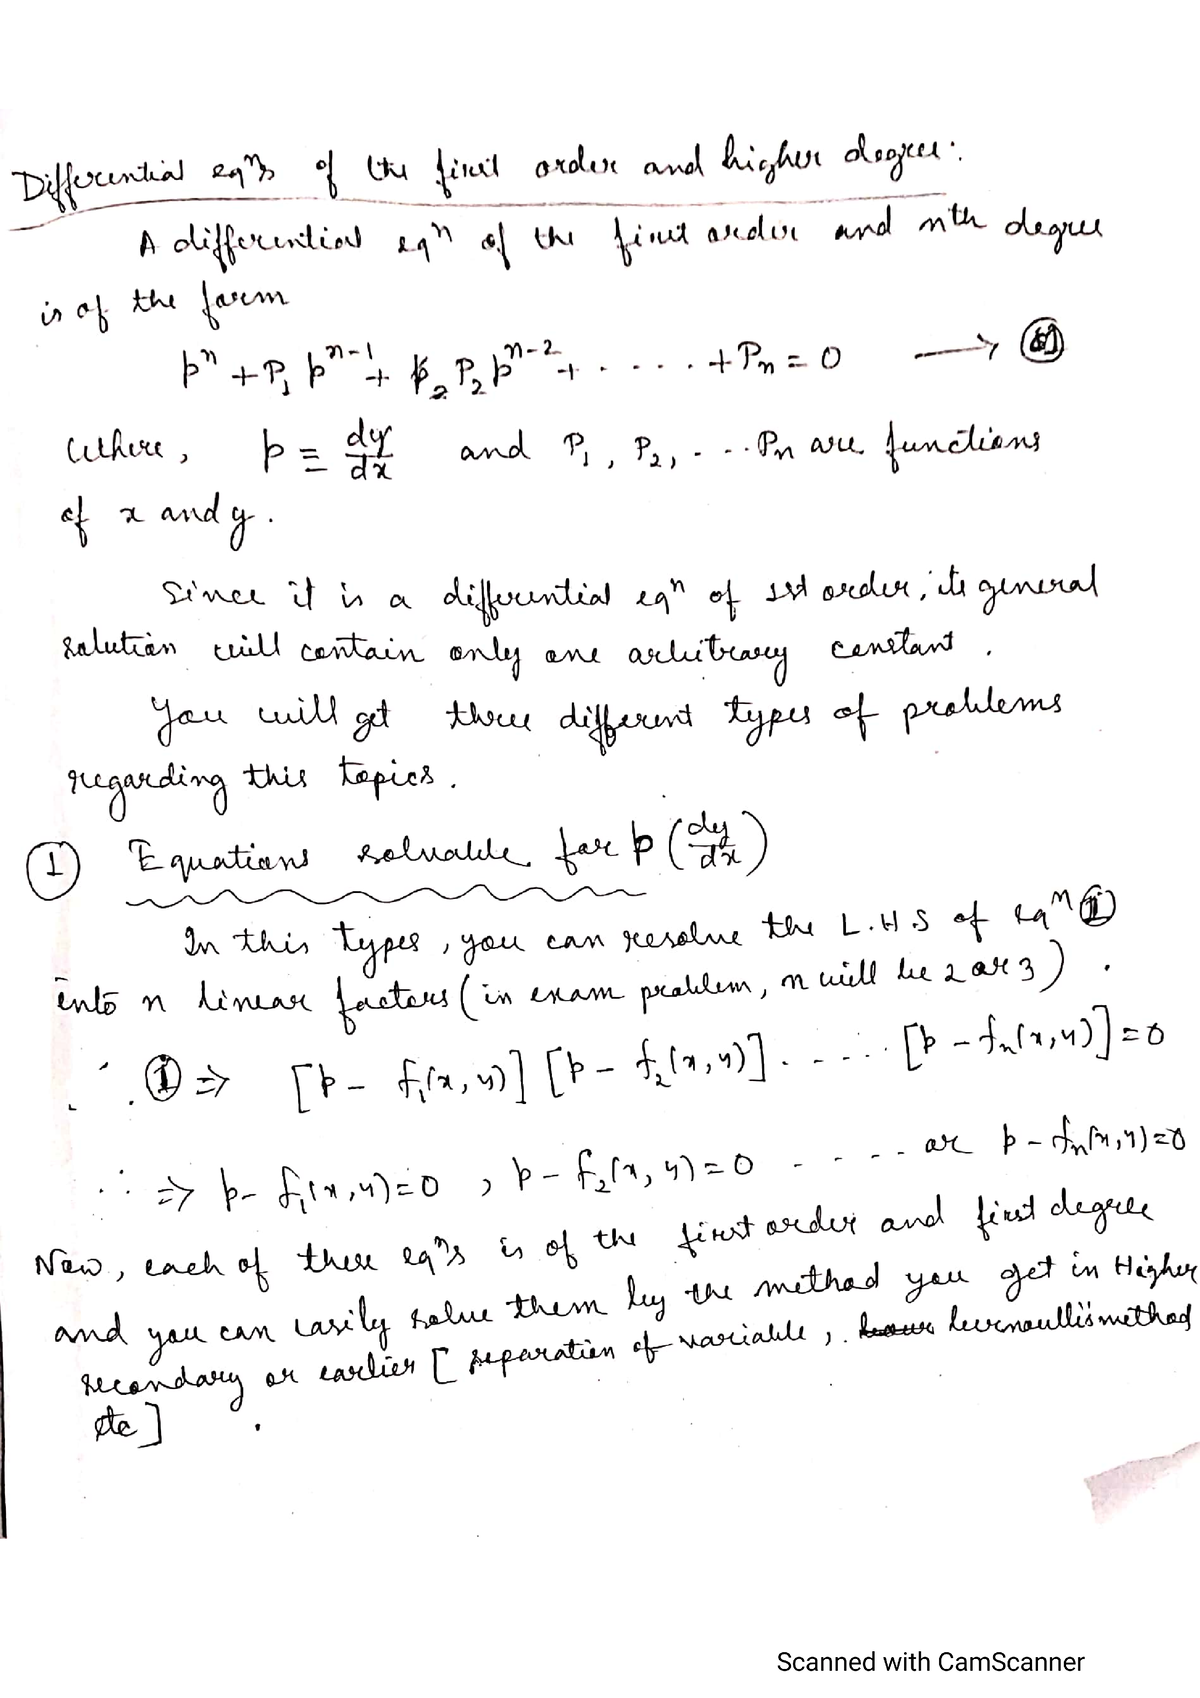 Differential eqⁿs of the first order and higher degree:
A differential eqⁿ of the first order and nth degree
is of the form
pⁿ + P₁ pⁿ⁻¹ + P₂ pⁿ⁻² + ..... + Pₙ = 0 → ①
Where, p = dy/dx and P₁, P₂, ... Pₙ are functions
of x and y.
Since it is a differential eqⁿ of 1st order, its general
solution will contain only one arbitrary constant.
You will get three different types of problems
regarding this topics.
① Equations solvable for p (dy/dx)
In this types, you can resolve the L.H.S of eqⁿ ①
into n linear factors (in exam problem, n will be 2 or 3).
∴ ① ⇒ [p - f₁(x,y)] [p - f₂(x,y)] ...... [p - fₙ(x,y)] = 0
∴ ⇒ p - f₁(x,y) = 0, p - f₂(x,y) = 0 ..... or p - fₙ(x,y) = 0
Now, each of these eqⁿs is of the first order and first degree
and you can easily solve them by the method you get in Higher
secondary or earlier [separation of variable, bernoulli's method
etc]
Scanned with CamScanner